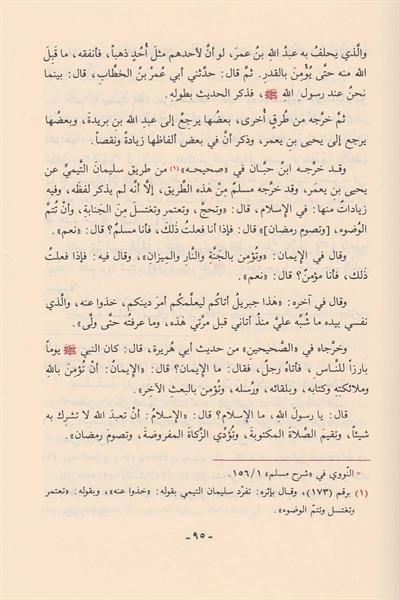 والَّذي يحلفُ به عبدُ اللهِ بنُ عمرَ، لو أنَّ لأحدهم مثلَ أُحدٍ ذهباً، فأنفقه، ما قَبِلَ
الله منه حتَّى يُؤْمِنَ بالقدرِ. ثمَّ قال: حدَّثني أبي عمرُ بنُ الخطَّابِ، قال: بينما
نحنُ عند رسولِ اللهِ ﷺ، فذكر الحديث بطولِه.
ثمَّ خرَّجه من طُرقٍ أخرى، بعضُها يرجعُ إلى عبدِ اللهِ بنِ بريدةَ، وبعضُها
يرجع إلى يحيى بنِ يعمر، وذكر أنَّ في بعض ألفاظها زيادةً ونَقصاً.
وقد خرَّجه ابنُ حبَّان في «صحيحه» (١) من طريق سليمانَ التَّيميِّ عن
يحيى بنِ يعمَر، وقد خرَّجه مسلمٌ مِنْ هٰذه الطَّريق، إلَّا أنَّه لم يذكر لفظَه، وفيه
زياداتٌ منها: في الإسلام، قال: «وتحجَّ، وتعتمر وتغتسلَ مِنَ الجَنابةِ، وأنْ تُتمَّ
الوُضوء، [وتصوم رمضان]» قال: فإذا أنا فعلتُ ذلك، فأنا مسلمٌ؟ قال: «نعم».
وقال في الإيمان: «وتُؤمِنَ بالجَنَّةِ والنَّارِ والميزانِ»، وقال فيه: فإذا فعلتُ
ذلك، فأنا مؤمنٌ؟ قال: «نعم».
وقال في آخره: «هٰذا جبريلُ أتاكُم ليعلِّمكُم أمرَ دينِكم، خذوا عنه، والَّذي
نفسي بيده ما شُبِّه عليَّ منذُ أتاني قبل مرَّتي هٰذه، وما عرفتُه حتَّى ولَّى».
وخرَّجاه في «الصَّحيحين» من حديث أبي هُريرة، قال: كان النبي ﷺ يوماً
بارزاً للنَّاس، فأتاهُ رجلٌ، فقال: ما الإيمانُ؟ قال: «الإيمانُ: أنْ تُؤمِنَ باللهِ
وملائكتِه وكتابِه، وبلقائه، ورُسله، وتُؤمِن بالبعثِ الآخِرِ».
قال: يا رسولَ الله، ما الإسلامُ؟ قال: «الإسلامُ: أنْ تعبدَ اللهَ لا تشركَ به
شيئاً، وتقيمَ الصَّلاةَ المكتوبةَ، وتُؤَدِّي الزَّكاةَ المفروضةَ، وتصومَ رمضان».
= النَّووي في «شرح مسلم» ١٥٦/١.
(١) برقم (١٧٣)، وقال بإثره: تفرّد سليمان التيمي بقوله: «خذوا عنه»، وبقوله: «تعتمر
وتغتسل وتتمّ الوضوء».
- ٩٥ -